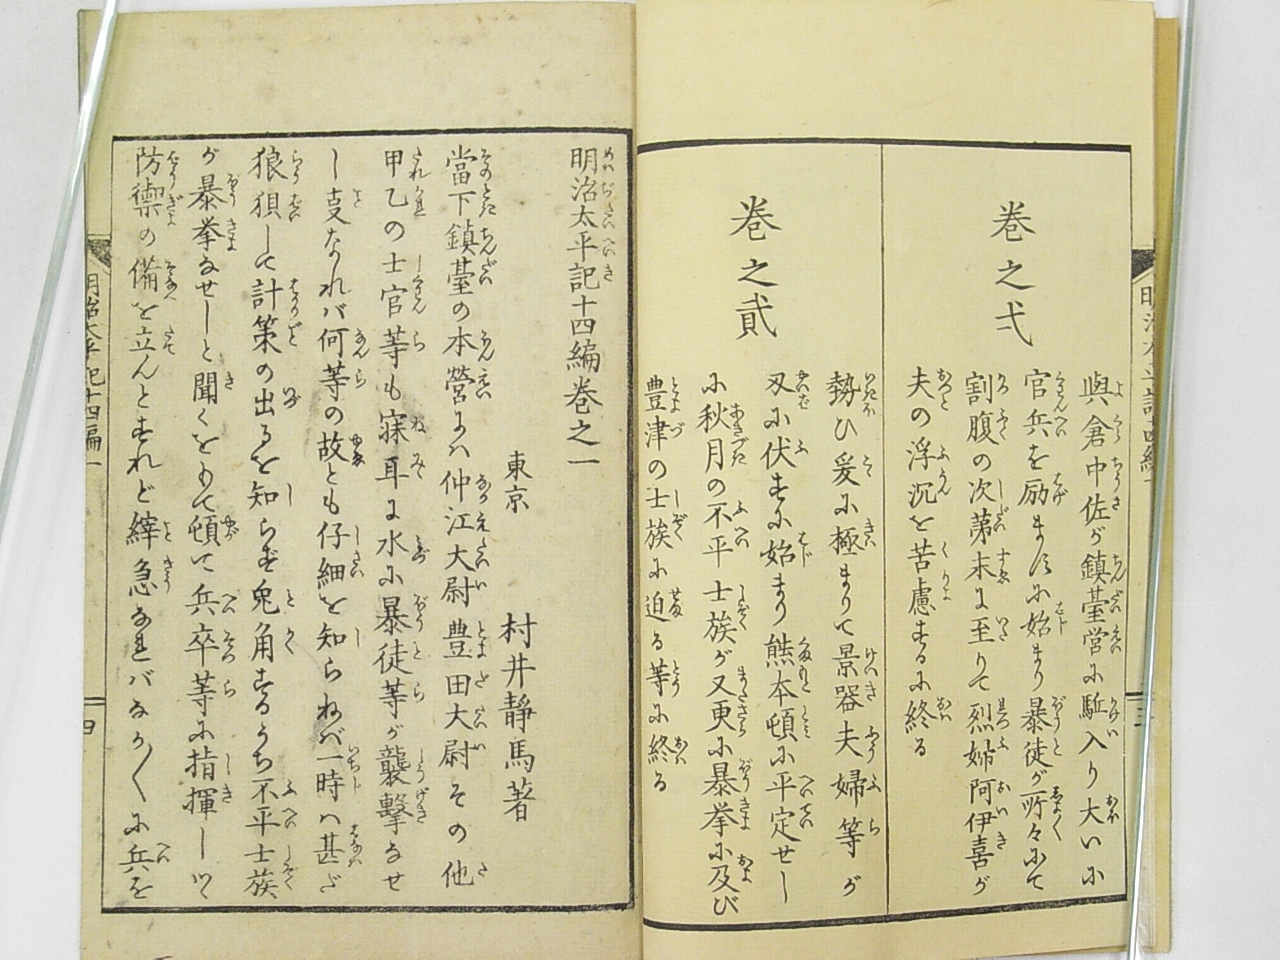 巻之弌
與倉中佐が鎮臺営に駈入り大いに
官兵を励ますに始まり暴徒が所々にて
割腹の次第末に至りて烈婦阿伊喜が
夫の浮沉を苦慮するに終る
巻之貳
勢ひ爰に極まりて景器夫婦等が
刄に伏すに始まり熊本頓に平定せし
に秋月の不平士族が又更に暴挙に及び
豊津の士族に迫る等に終る
明治太平記十四編巻之一
東京 村井靜馬著
當下鎮臺の本營には仲江大尉豊田大尉その他
甲乙の士官等も寐耳に水に暴徒等が襲撃なせ
し支なれバ何等の故とも仔細を知らねバ一時ハ甚だ
狼狽して計策の出るを知らず兎角するうち不平士族
が暴挙なせしと聞くをもて頓て兵卒等に指揮しつゝ
防禦の備を立んとすれど繂急なれバなか〳〵に兵を
明治太平記十四編一
四